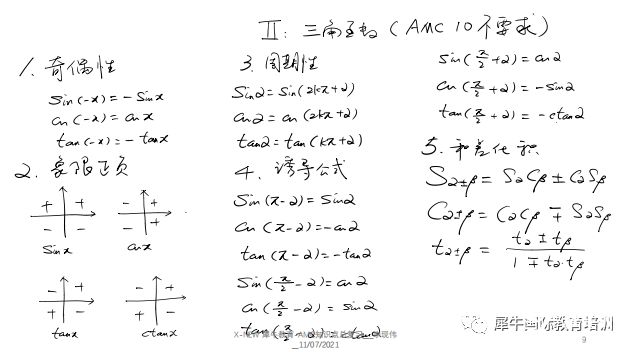 II: 三角函数 (AMC 10不要求)
1. 奇偶性
sin(-x) = -sinx
cos(-x) = cosx
tan(-x) = -tanx
2. 象限正负
+ +
- -
sinx
- +
- +
cosx
- +
+ -
tanx
- +
+ -
ctanx
3. 周期性
Sinα = sin(2kπ+α)
cosα = cos(2kπ+α)
tanα = tan(kπ+α)
4. 诱导公式
Sin(π-α) = sinα
cos(π-α) = -cosα
tan(π-α) = -tanα
Sin(π/2 - α) = cosα
cos(π/2 - α) = sinα
tan(π/2 - α) = ctanα
sin(π/2 + α) = cosα
cos(π/2 + α) = -sinα
tan(π/2 + α) = -ctanα
5. 和差化积
Sα±β = SαCβ ± CαSβ
Cα±β = CαCβ ∓ SαSβ
tα±β = (tα ± tβ) / (1 ∓ tα·tβ)
犀牛国际教育培训
11/07/2021
9